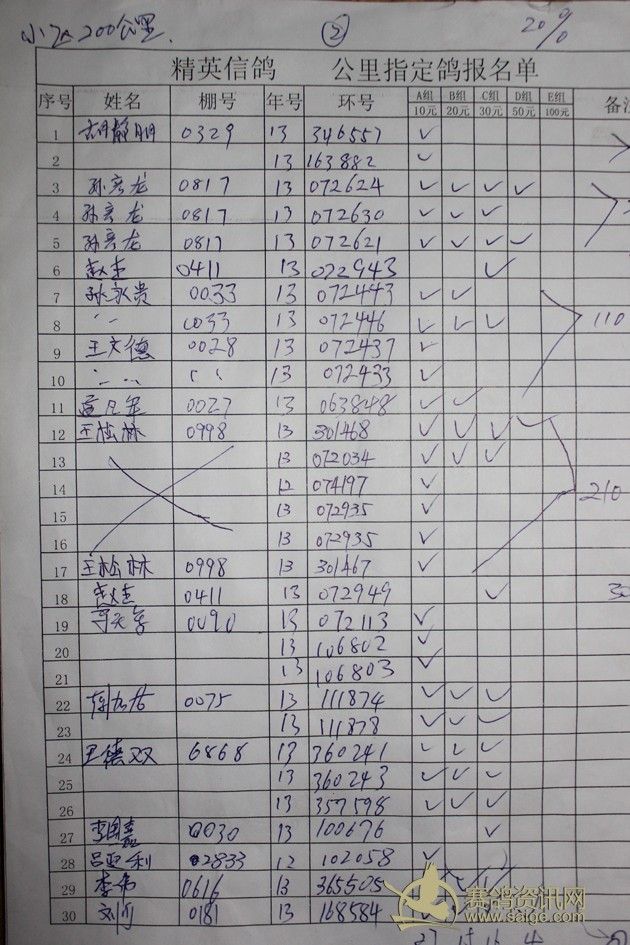 200公里. ② 20%
精英信鸽 公里指定鸽报名单
序号 姓名 棚号 年号 环号 A组 10元 B组 20元 C组 30元 D组 50元 E组 100元 备注
1 胡静朋 0329 13 346557 ✓
2 13 163882 ✓
3 孙彦龙 0817 13 072624 ✓ ✓ ✓ ✓
4 孙彦龙 0817 13 072630 ✓ ✓ ✓
5 孙彦龙 0817 13 072621 ✓ ✓ ✓ ✓
6 0411 13 072943 ✓
7 孙永贵 0033 13 072443 ✓ ✓
8 〃 0033 13 072446 ✓ ✓ ✓ 110
9 王文德 0028 13 072437 ✓
10 〃 〃 13 072433 ✓
11 0027 13 063848 ✓ ✓
12 王松林 0998 13 301468 ✓ ✓ ✓ ✓
13 13 072034 ✓ ✓ ✓
14 12 074197 ✓ 210
15 13 072935 ✓
16 13 072935 ✓
17 王松林 0998 13 301467 ✓
18 0411 13 072949 ✓
19 0090 13 072113 ✓
20 13 106802 ✓
21 13 106803 ✓
22 0075 13 111874 ✓ ✓ ✓
23 13 111878 ✓ ✓ ✓
24 王德双 6868 13 360241 ✓ ✓ ✓
25 13 360243 ✓ ✓ ✓
26 13 357598 ✓ ✓ ✓
27 李国嘉 0030 13 100676 ✓
28 吕亚利 02833 12 102058 ✓
29 李伟 0616 13 365505 ✓ ✓ ✓
30 0181 13 168584 ✓
赛鸽资讯网
www.saige.com